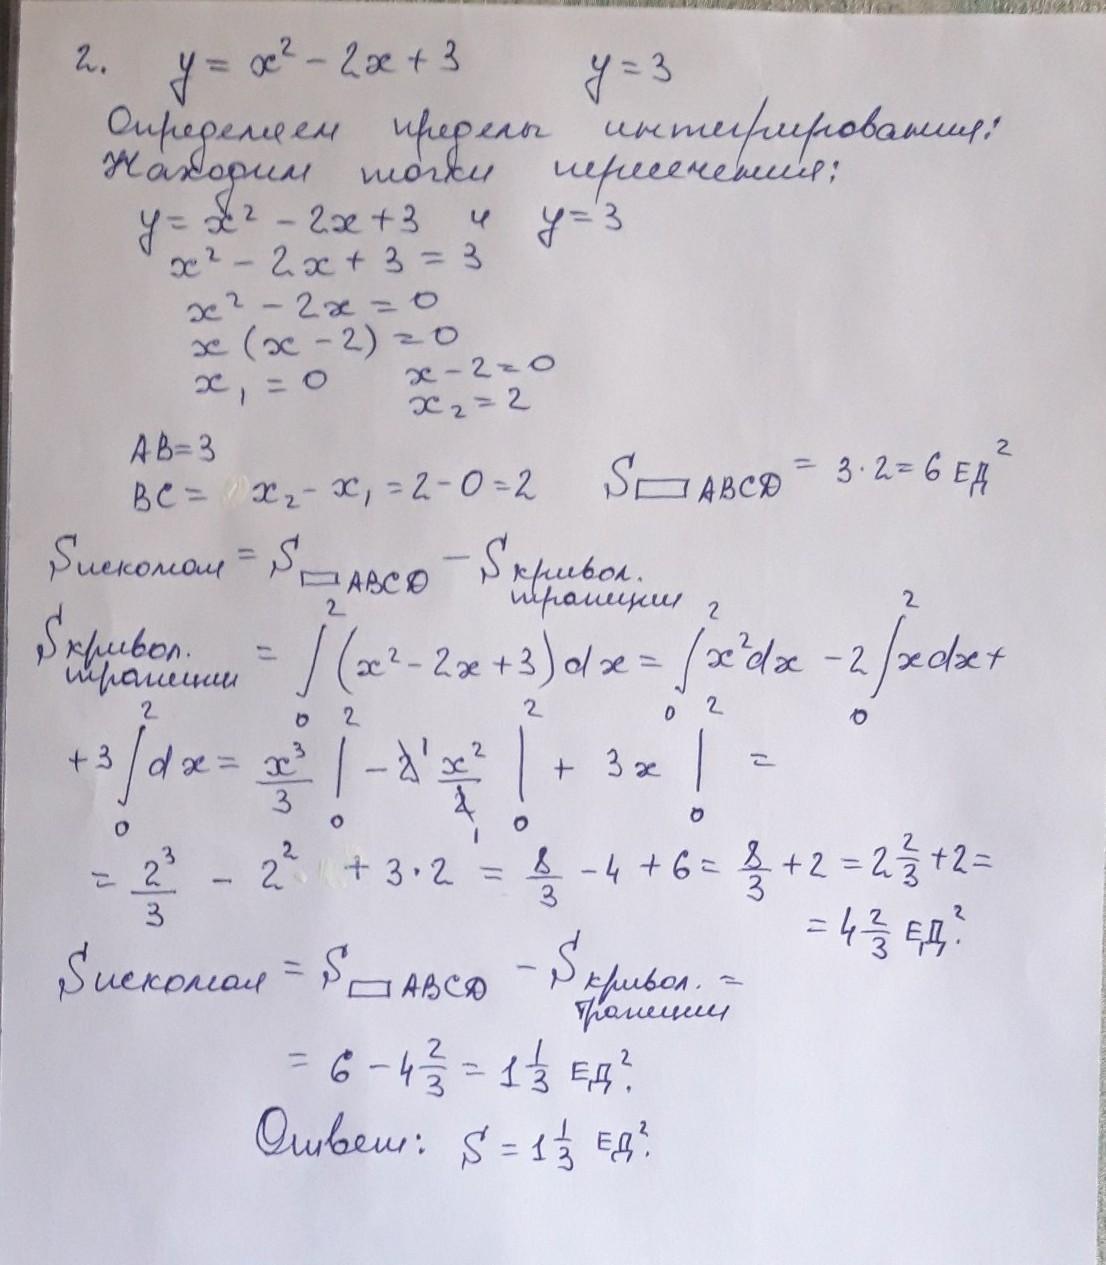 2. y = x² - 2x + 3 y = 3
Определяем пределы интегрирования:
Находим точки пересечения:
y = x² - 2x + 3 и y = 3
x² - 2x + 3 = 3
x² - 2x = 0
x (x - 2) = 0
x₁ = 0 x - 2 = 0
x₂ = 2
AB = 3
BC = x₂ - x₁ = 2 - 0 = 2 S▭ABCD = 3·2 = 6 ЕД²
Sискомая = S▭ABCD - Sкривол. трапеции
Sкривол. трапеции = ∫₀² (x² - 2x + 3) dx = ∫₀² x²dx - 2∫₀² xdx +
+ 3∫₀² dx = x³/3 |₀² - 2̸¹ x²/2̸₁ |₀² + 3x |₀² =
= 2³/3 - 2² + 3·2 = 8/3 - 4 + 6 = 8/3 + 2 = 2 2/3 + 2 =
= 4 2/3 ЕД².
Sискомая = S▭ABCD - Sкривол. трапеции =
= 6 - 4 2/3 = 1 1/3 ЕД².
Ответ: S = 1 1/3 ЕД².